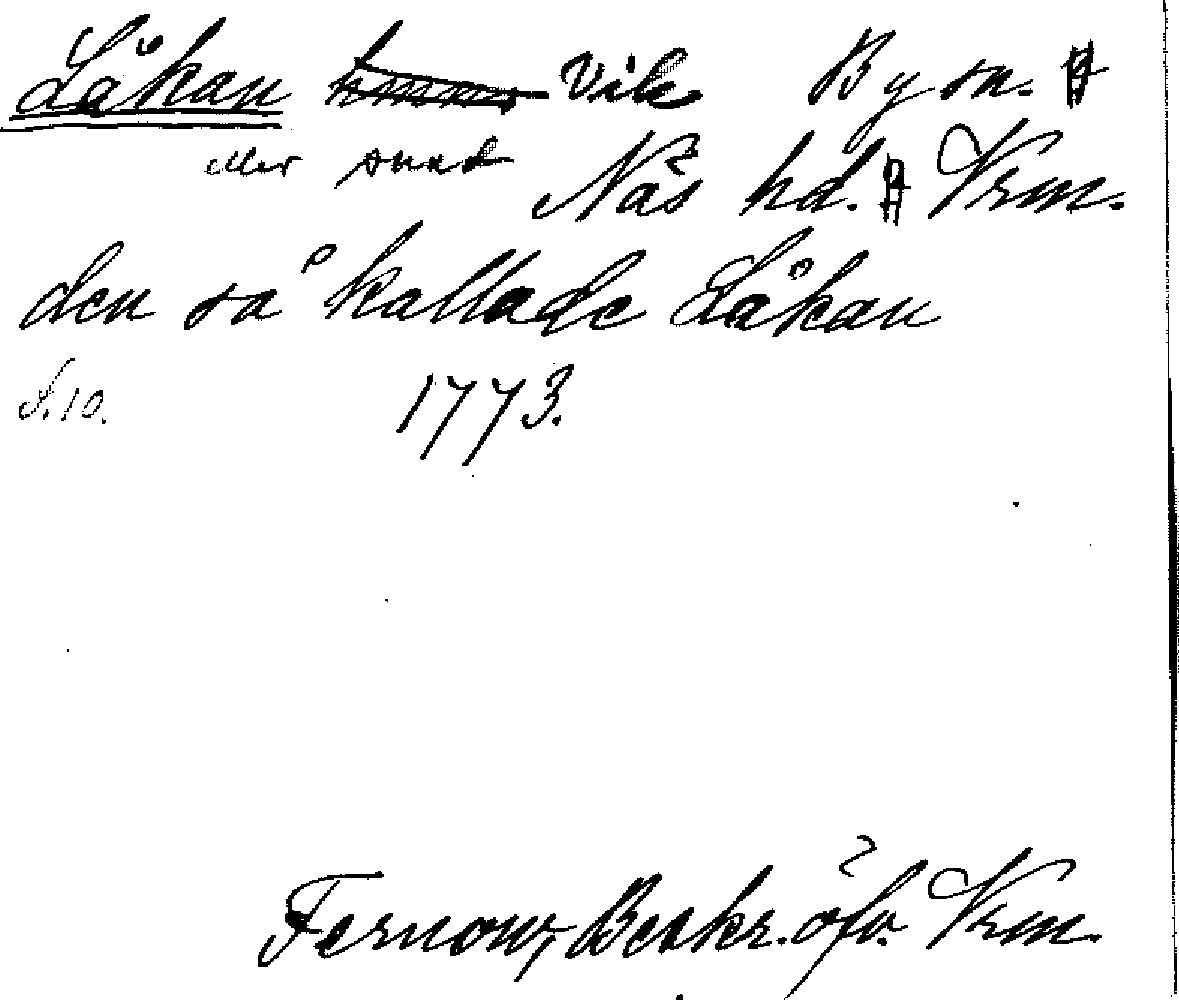 Låkan Vik By sn.
eller sund
Näs hd. Vrm.
den så kallade Låkan
s. 10. 1773.
Fernow, Beskr. öfv. Vrm.